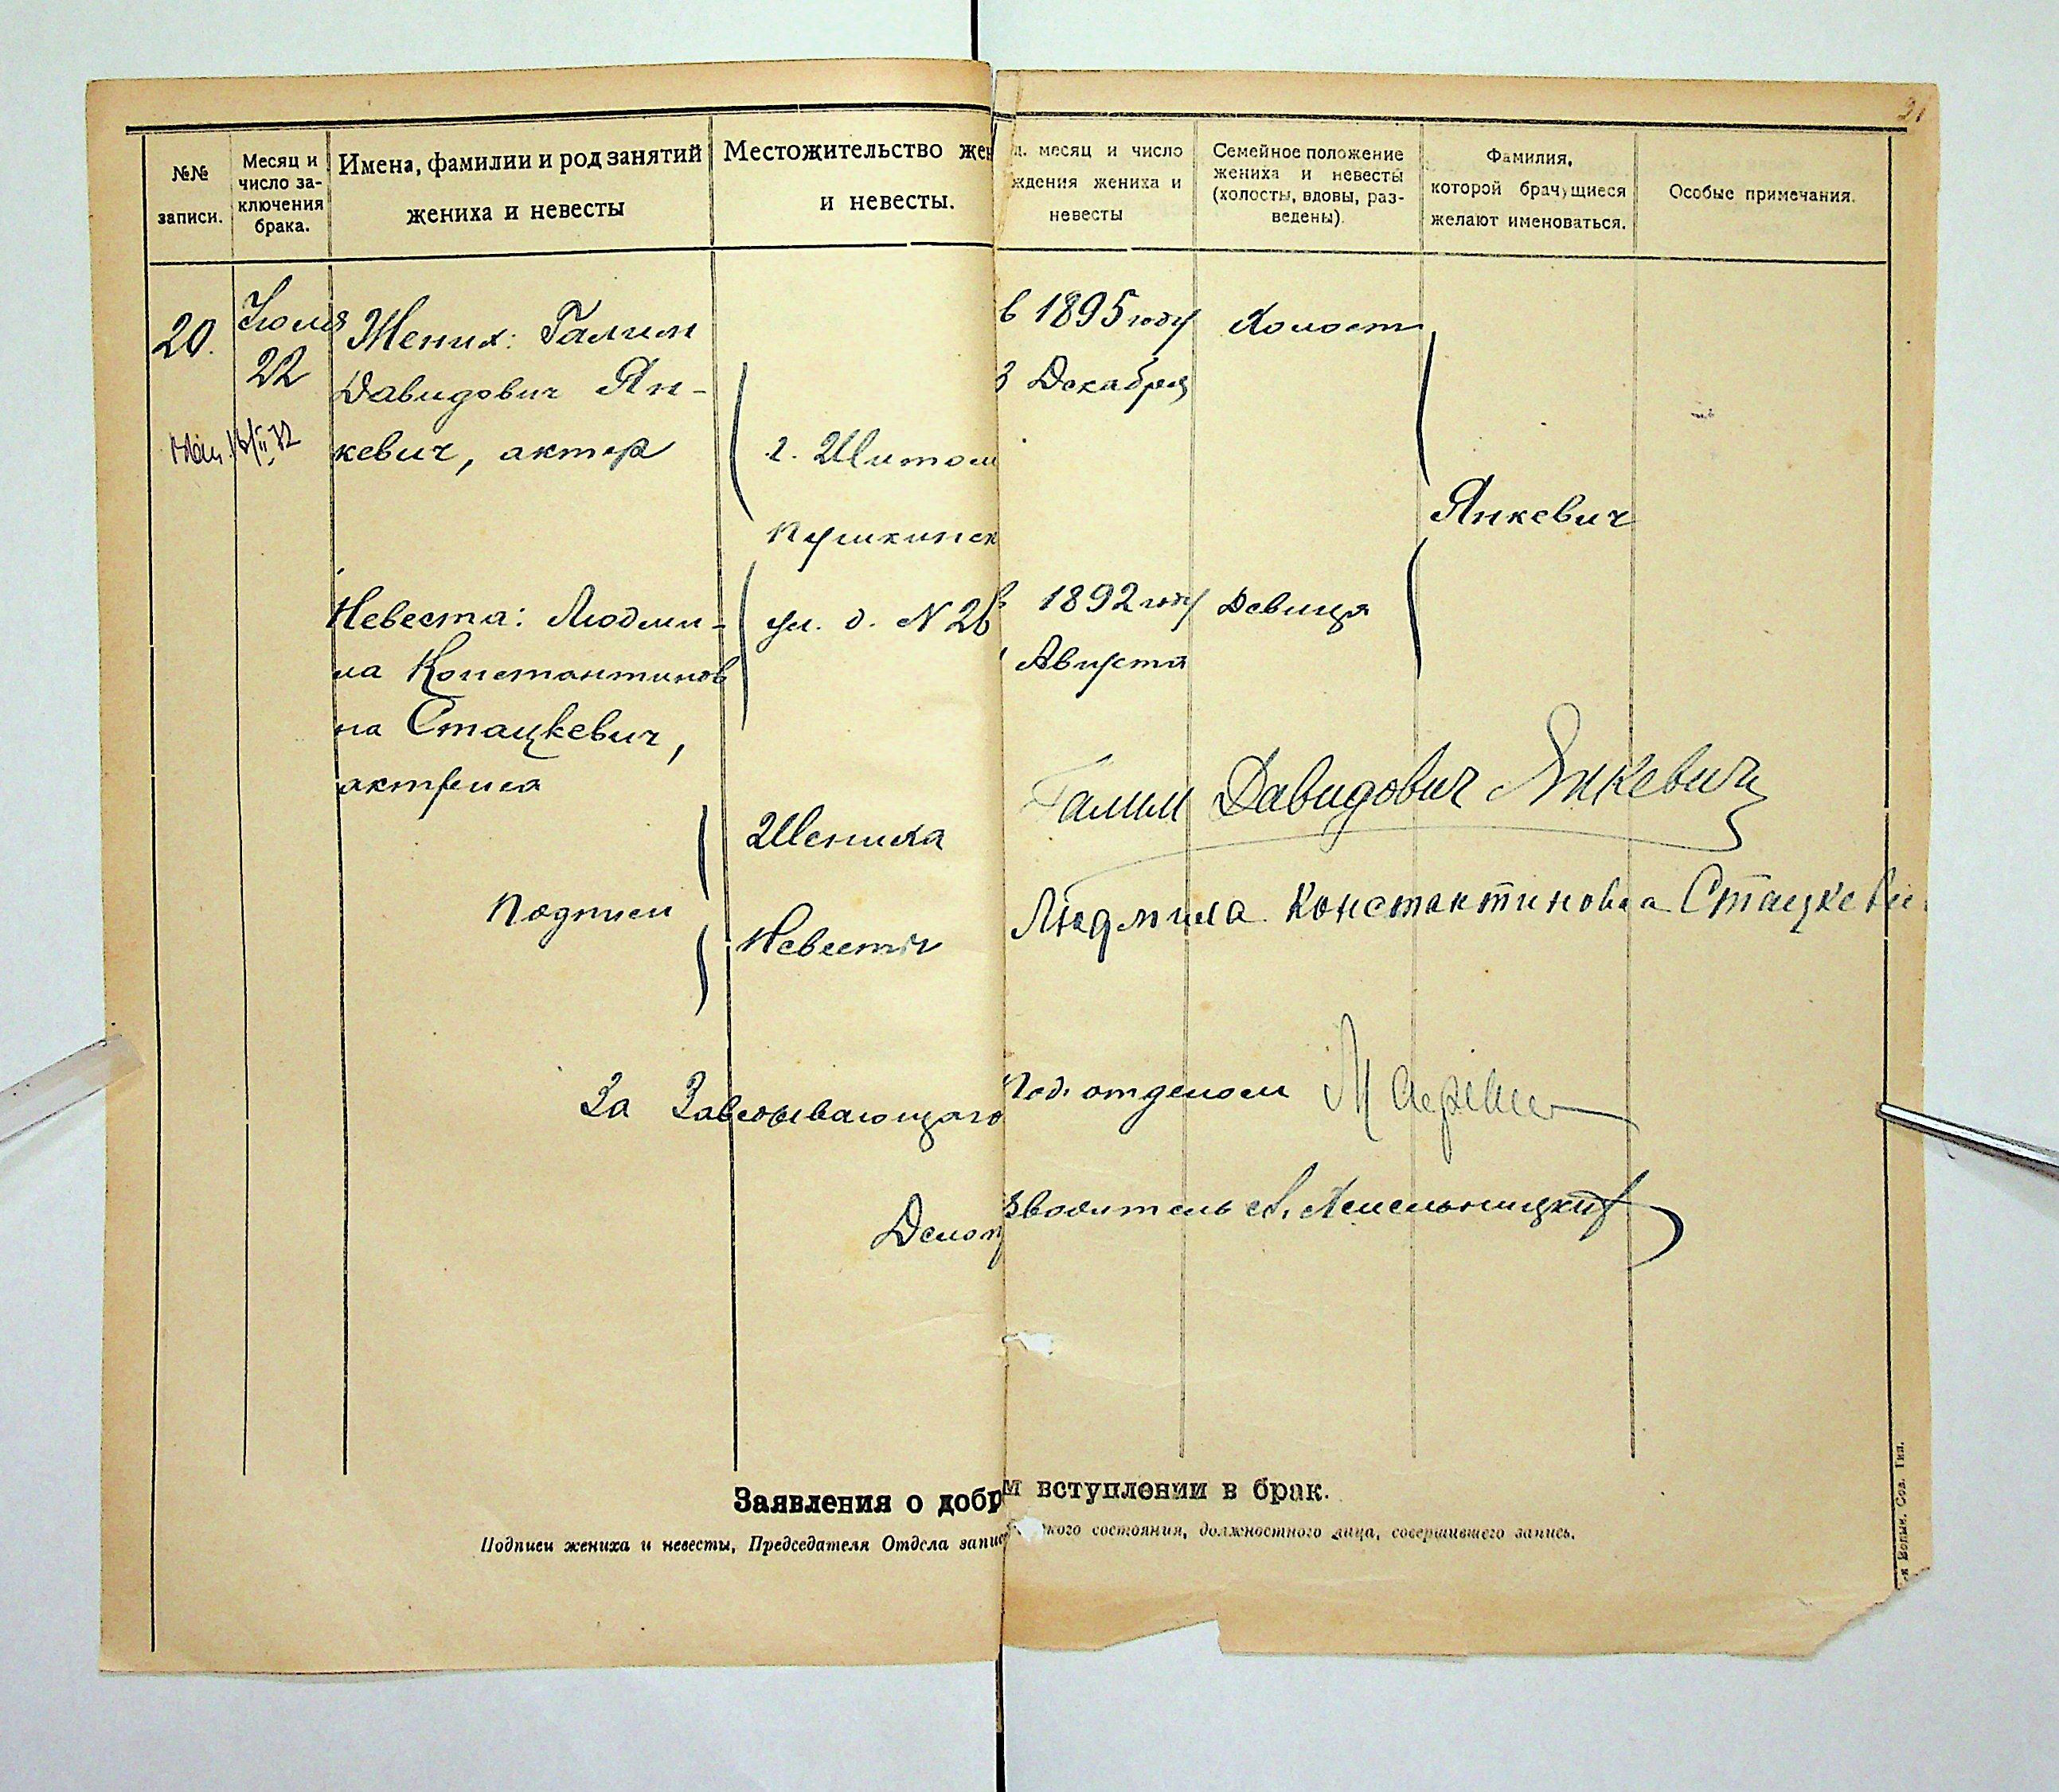 21
№№
записи.
Месяц и
число за-
ключения
брака.
Имена, фамилии и род занятий
жениха и невесты
Местожительство жен
и невесты.
д. месяц и число
ждения жениха и
невесты
Семейное положение
жениха и невесты
(холосты, вдовы, раз-
ведены).
Фамилия,
которой брачущиеся
желают именоваться.
Особые примечания.
20.
Июля
22
Жених: Галим
Давидович Ян-
кевич, актер
г. Житом
Пушкинск
ул. д. N 26
в 1895 году
3 Декабря
Холост
Янкевич
Невеста: Людми-
ла Константинов
на Стацкевич,
актриса
1892 году
Августа
Девица
Подписи
Жениха
Галим Давидович Янкевич
Невесты
Людмила Константиновна Стацкеви
За Заведывающаго
Подотделом
Делопр
зводитель
Заявления о добр
м вступлении в брак.
Подписи жениха и невесты, Председателя Отдела запис
кого состояния, должностного лица, совершившего запись.
Волын. Сов. Тип.